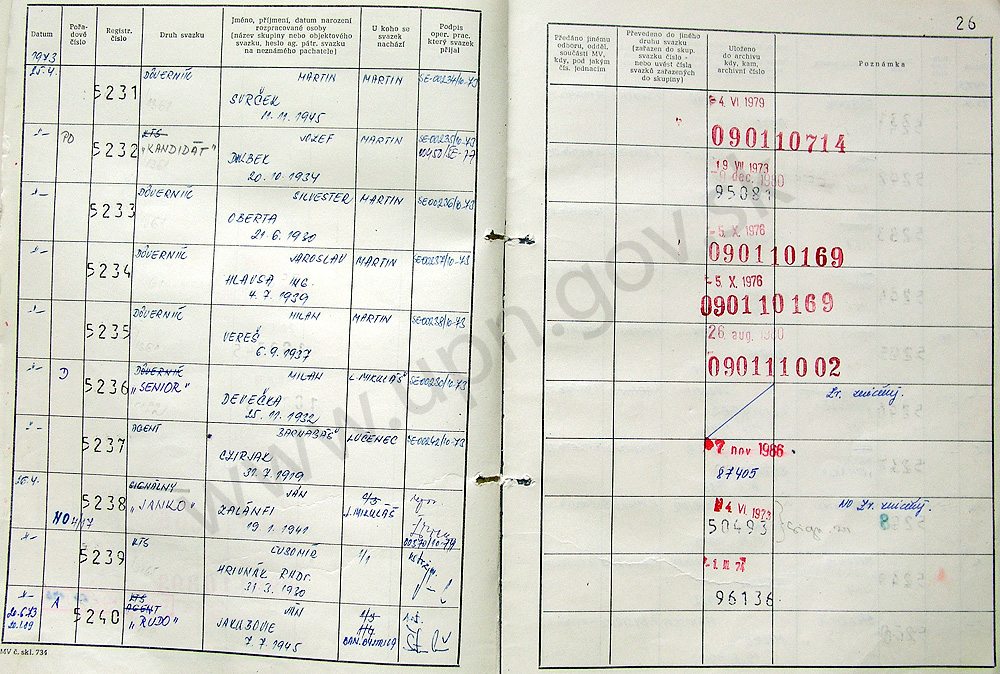 Datum
Pořa-
dové
číslo
Registr.
číslo
Druh svazku
Jméno, příjmení, datum narození
rozpracované osoby
(název skupiny nebo objektového
svazku, heslo ag. pátr. svazku
na neznámého pachatele)
U koho se
svazek
nachází
Podpis
oper. prac.
který svazek
přijal
1973
25.4.
5231
DÔVERNÍK
MARTIN
SVRČEK
11.11.1945
MARTIN
SE-00234/10-73
PD
5232
KTS
„KANDIDÁT"
JOZEF
DULBEK
20.10.1934
MARTIN
SE-00235/10-73
5233
DÔVERNÍK
SILVESTER
OBERTA
21.6.1930
MARTIN
SE-00236/10-73
5234
DÔVERNÍK
JAROSLAV
HLAVSA ING.
4.7.1939
MARTIN
SE-00237/10-73
5235
DÔVERNÍK
MILAN
VEREŠ
6.9.1937
MARTIN
SE-00238/10-73
D
5236
DÔVERNÍK
„SENIOR"
MILAN
DEVEČKA
25.11.1932
L. MIKULÁŠ
SE-00230/10-73
5237
AGENT
BARNABÁŠ
CYRJAK
31.7.1919
LUČENEC
SE-00242/10-73
26.4.
5238
SIGNÁLNY
„JANKO"
JÁN
ZALÁNFI
19.1.1941
L. MIKULÁŠ
5239
KTS
ĽUBOMÍR
HRIVNÁK RNDr.
31.3.1930
1/1
A
5240
KTS
AGENT
„RUDO"
JÁN
JAKUBOVIE
7.7.1945
BAN. BYSTRICA
MV č. skl. 734
26
Předáno jinému
odboru, odděl.
součásti MV,
kdy, pod jakým
čís. jednacím
Převedeno do jiného
druhu svazku
(zařazen do skup.
svazku číslo -
nebo uvést čísla
svazků zařazených
do skupiny)
Uloženo
do archivu
kdy, kam,
archivní číslo
Poznámka
-4. VI 1979
090110714
19. VII 1973
95081
-5. X. 1976
090110169
-5. X. 1976
090110169
26. aug. 1980
090111002
Zr. zničený.
7 nov 1986
87405
4. VI 1973
50493
NO Zr. zničený.
-1. III 74
96136
www.upn.gov.sk